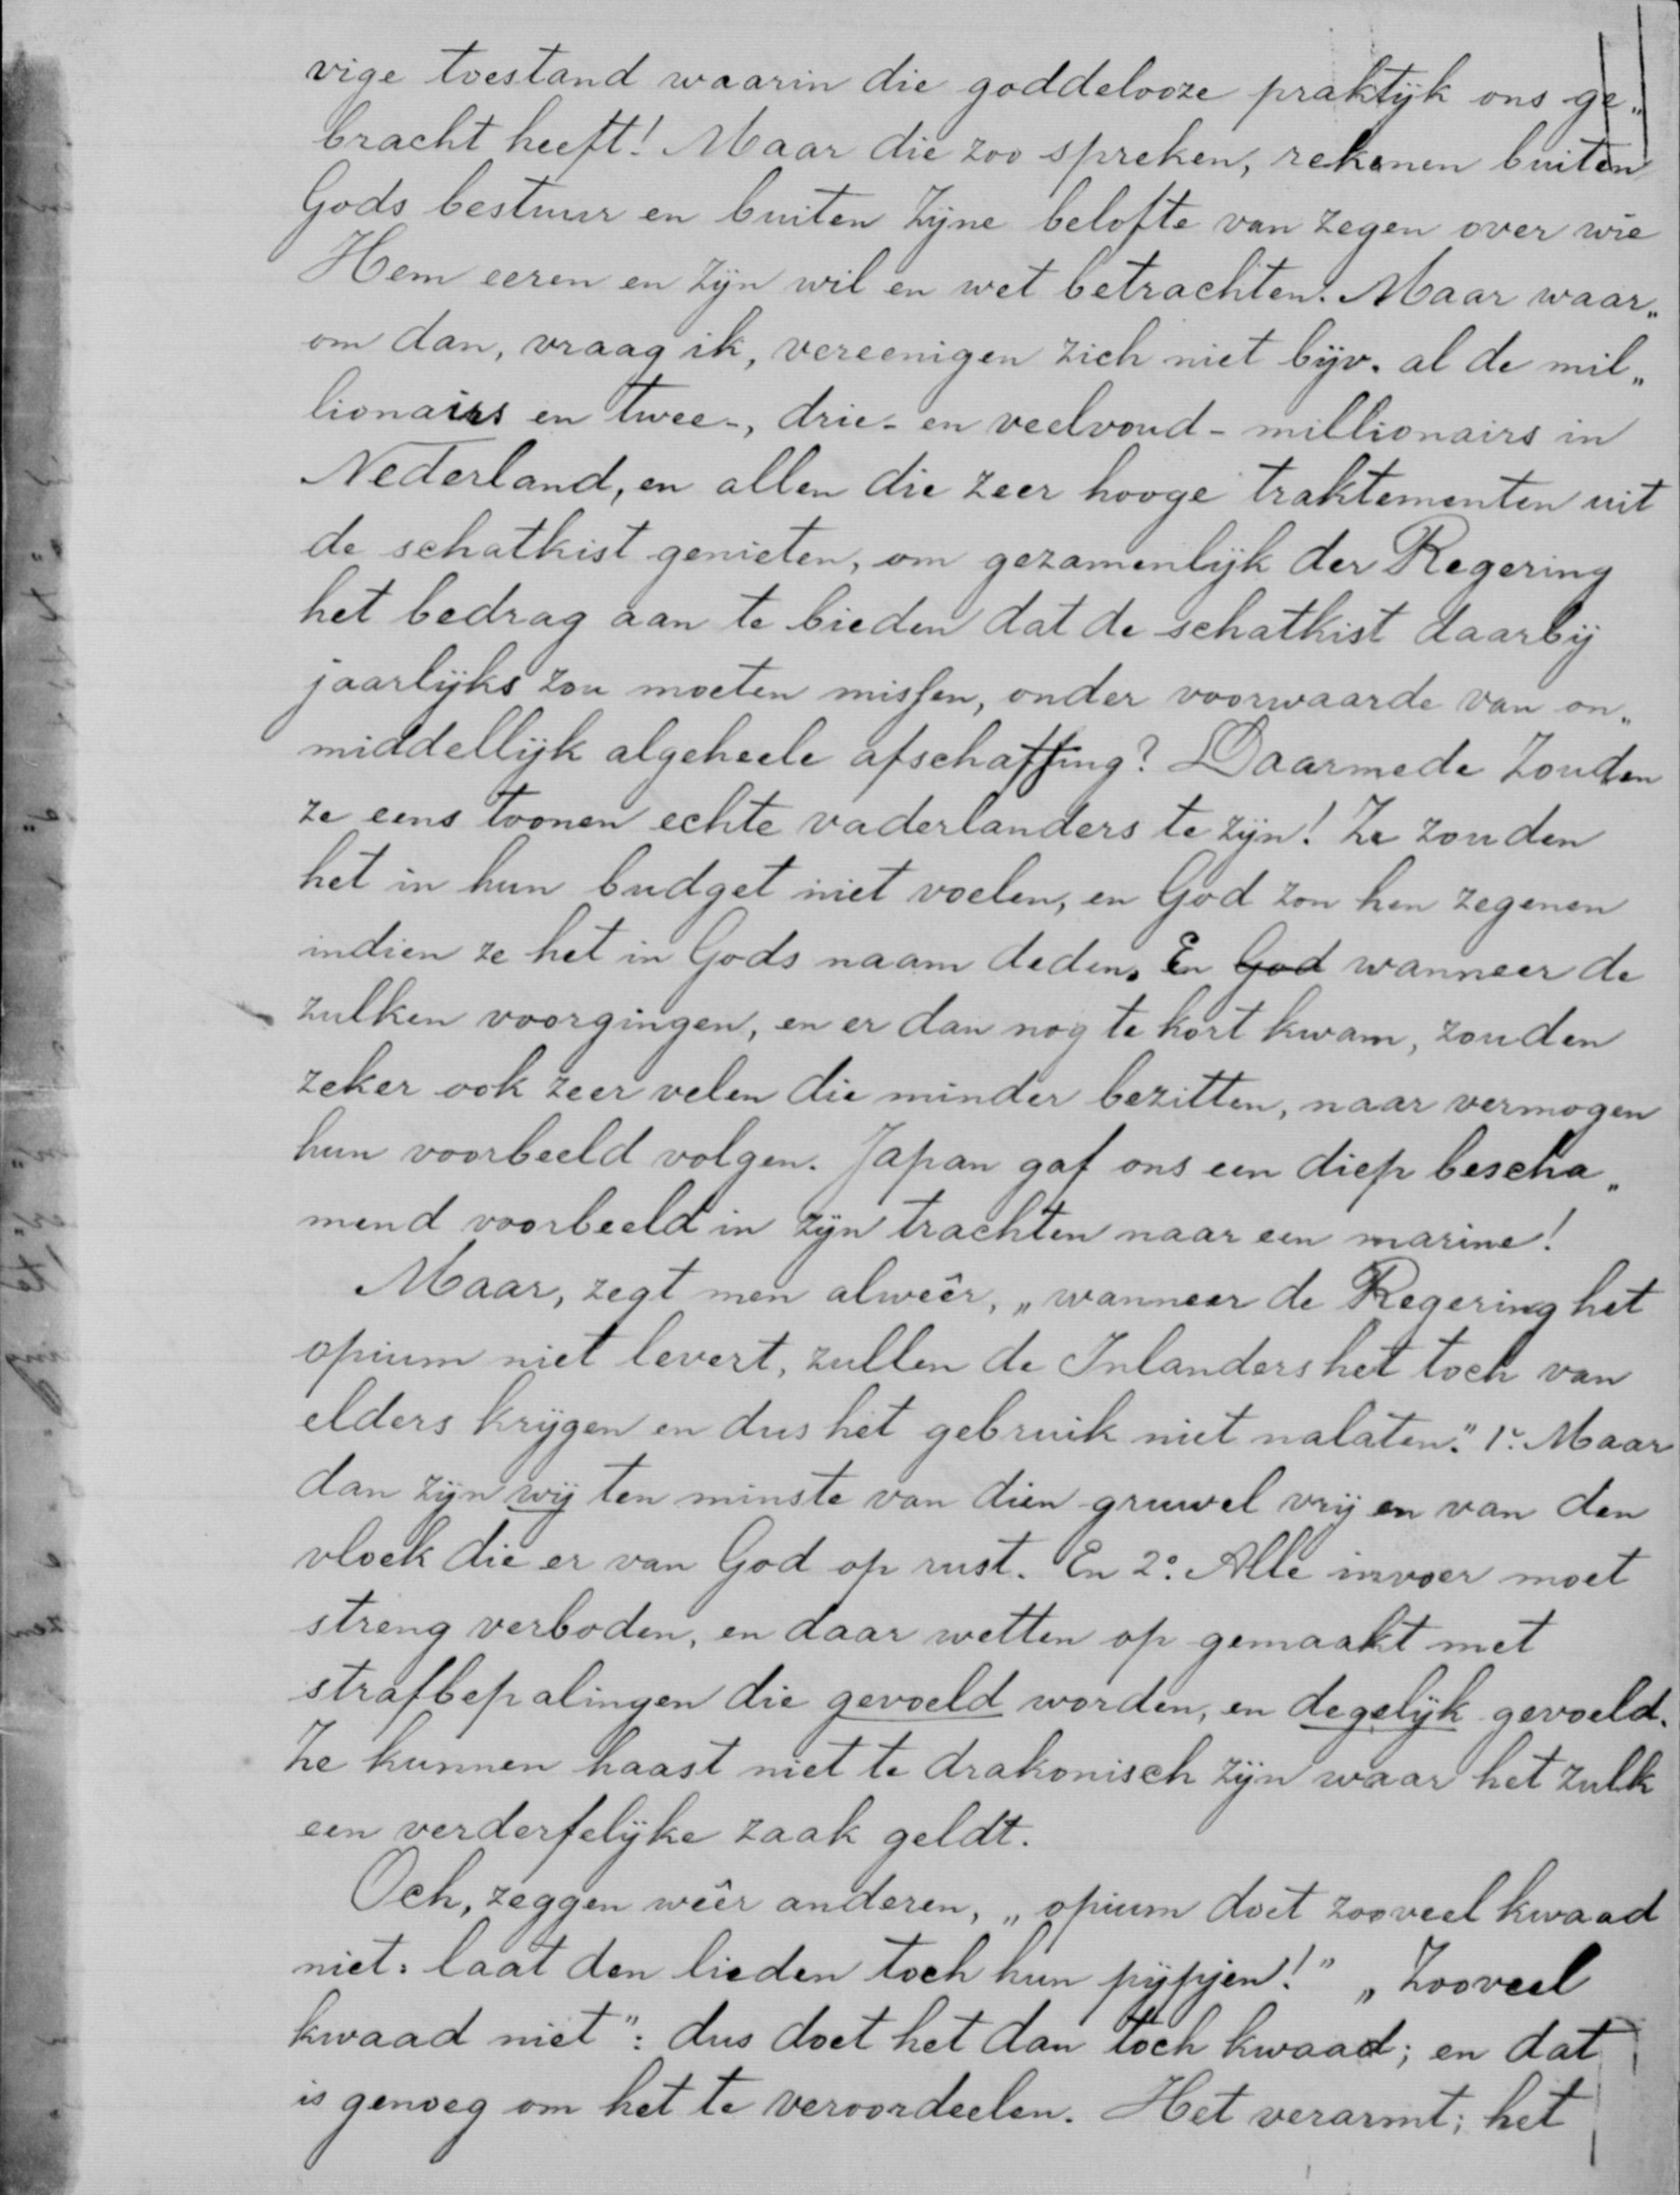 vige toestand waarin die goddelooze praktijk ons ge„
bracht heeft! Maar die zoo spreken, rekenen buiten
Gods bestuur en buiten Zijne belofte van zegen over wie
Hem eeren en Zijn wil en wet betrachten. Maar waar„
om dan, vraag ik, vereenigen zich niet bijv. al de mil„
lionairs en twee-, drie- en veelvoud-millionairs in
Nederland, en allen die zeer hooge traktementen uit
de schatkist genieten, om gezamenlijk der Regering
het bedrag aan te bieden dat de schatkist daarbij
jaarlijks zou moeten missen, onder voorwaarde van on„
middellijk algeheele afschaffing? Daarmede zouden
ze eens toonen echte vaderlanders te zijn! Ze zouden
het in hun budget niet voelen, en God zou hen zegenen
indien ze het in Gods naam deden. En God wanneer de
zulken voorgingen, en er dan nog te kort kwam, zouden
zeker ook zeer velen die minder bezitten, naar vermogen
hun voorbeeld volgen. Japan gaf ons een diep bescha„
mend voorbeeld in zijn trachten naar een marine!
Maar, zegt men alweêr, „wanneer de Regering het
opium niet levert, zullen de Inlanders het toch van
elders krijgen en dus het gebruik niet nalaten." 1º. Maar
dan zijn wij ten minste van dien gruwel vrij en van den
vloek die er van God op rust. En 2º. Alle invoer moet
streng verboden, en daar wetten op gemaakt met
strafbepalingen die gevoeld worden, en degelijk gevoeld.
Ze kunnen haast niet te drakonisch zijn waar het zulk
een verderfelijke zaak geldt.
Och, zeggen wêêr anderen, „opium doet zooveel kwaad
niet: laat den lieden toch hun pijpjen!" „Zooveel
kwaad niet": dus doet het dan toch kwaad; en dat
is genoeg om het te veroordeelen. Het verarmt; het